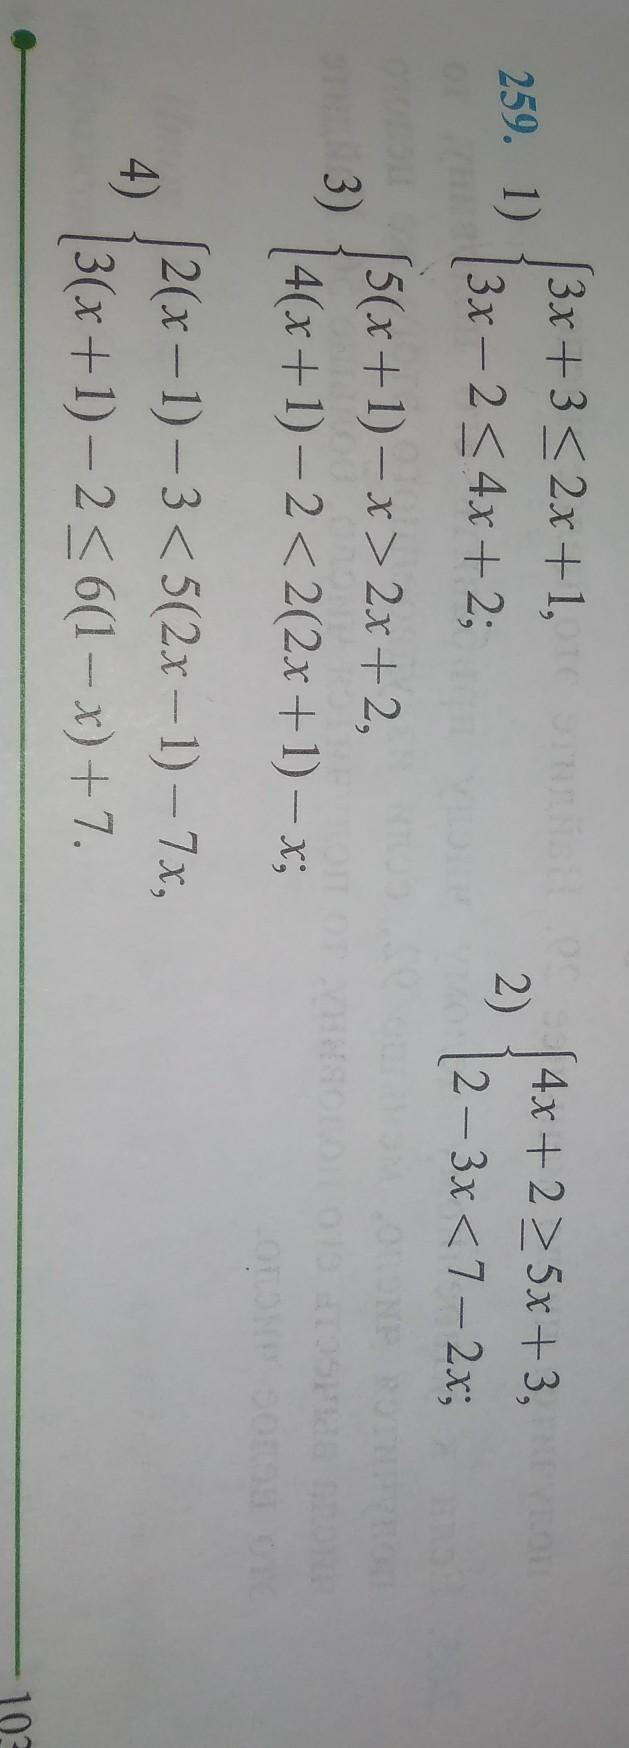 259. 1) { 3x + 3 ≤ 2x + 1,
3x − 2 ≤ 4x + 2;
2) { 4x + 2 ≥ 5x + 3,
2 − 3x < 7 − 2x;
3) { 5(x + 1) − x > 2x + 2,
4(x + 1) − 2 < 2(2x + 1) − x;
4) { 2(x − 1) − 3 < 5(2x − 1) − 7x,
3(x + 1) − 2 ≤ 6(1 − x) + 7.